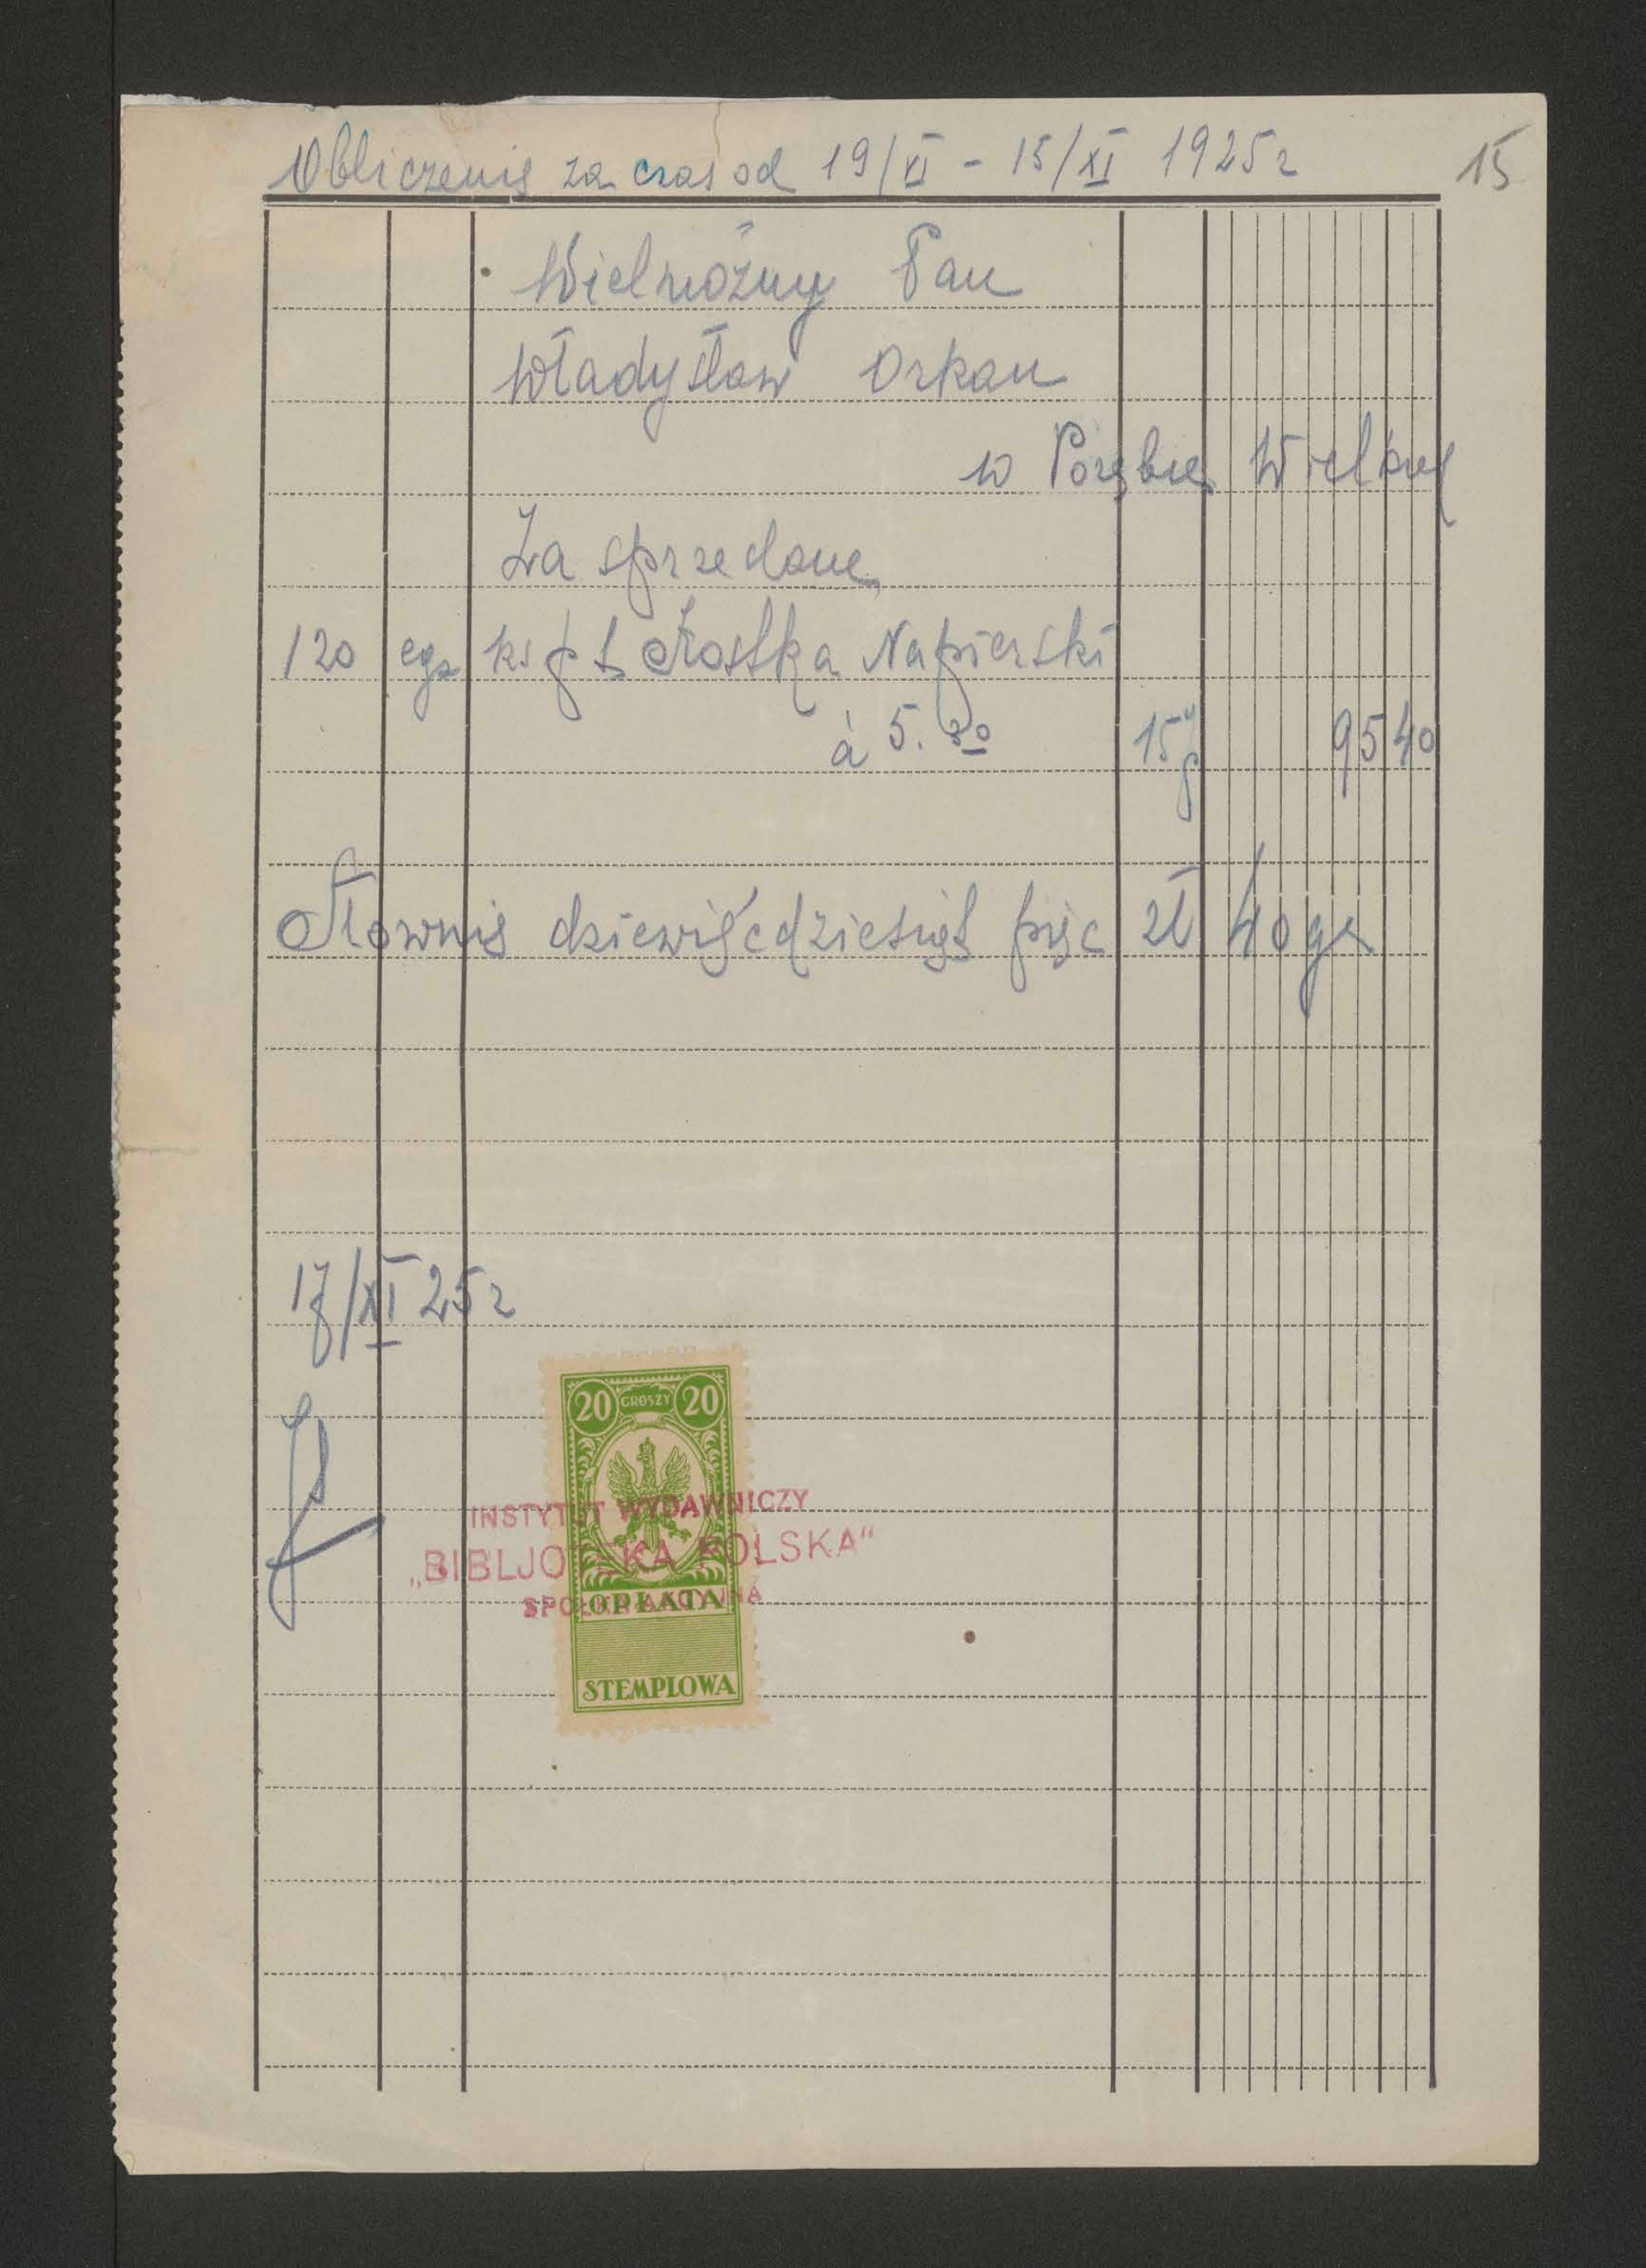 Obliczenie za czas od 19/VI - 15/XI 1925 r
15
Wielmożny Pan
Władysław Orkan
w Porębie Wielkiej
Za sprzedane
120 egz ks p t Kostka Napierski
à 5.30 15% 95 40
Słownie dziewięćdziesiąt pięć zł 40 gr
17/XI 25 r
20 GROSZY 20
INSTYTUT WYDAWNICZY
„BIBLJOTEKA POLSKA“
SPÓŁKA AKCYJNA
OPŁATA
STEMPLOWA